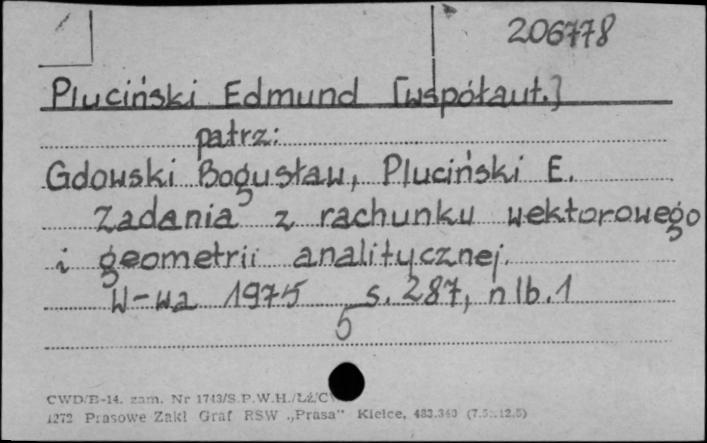 206778
Pluciński Edmund [współaut.]
patrz:
Gdowski Bogusław, Pluciński E.
Zadania z rachunku wektorowego
i geometrii analitycznej.
W-wa 1975 s. 287, nlb. 1
5
CWD/B-14. zam. Nr 1743/S.P.W.H./Łź/
1272 Prasowe Zakł Graf RSW „Prasa" Kielce,